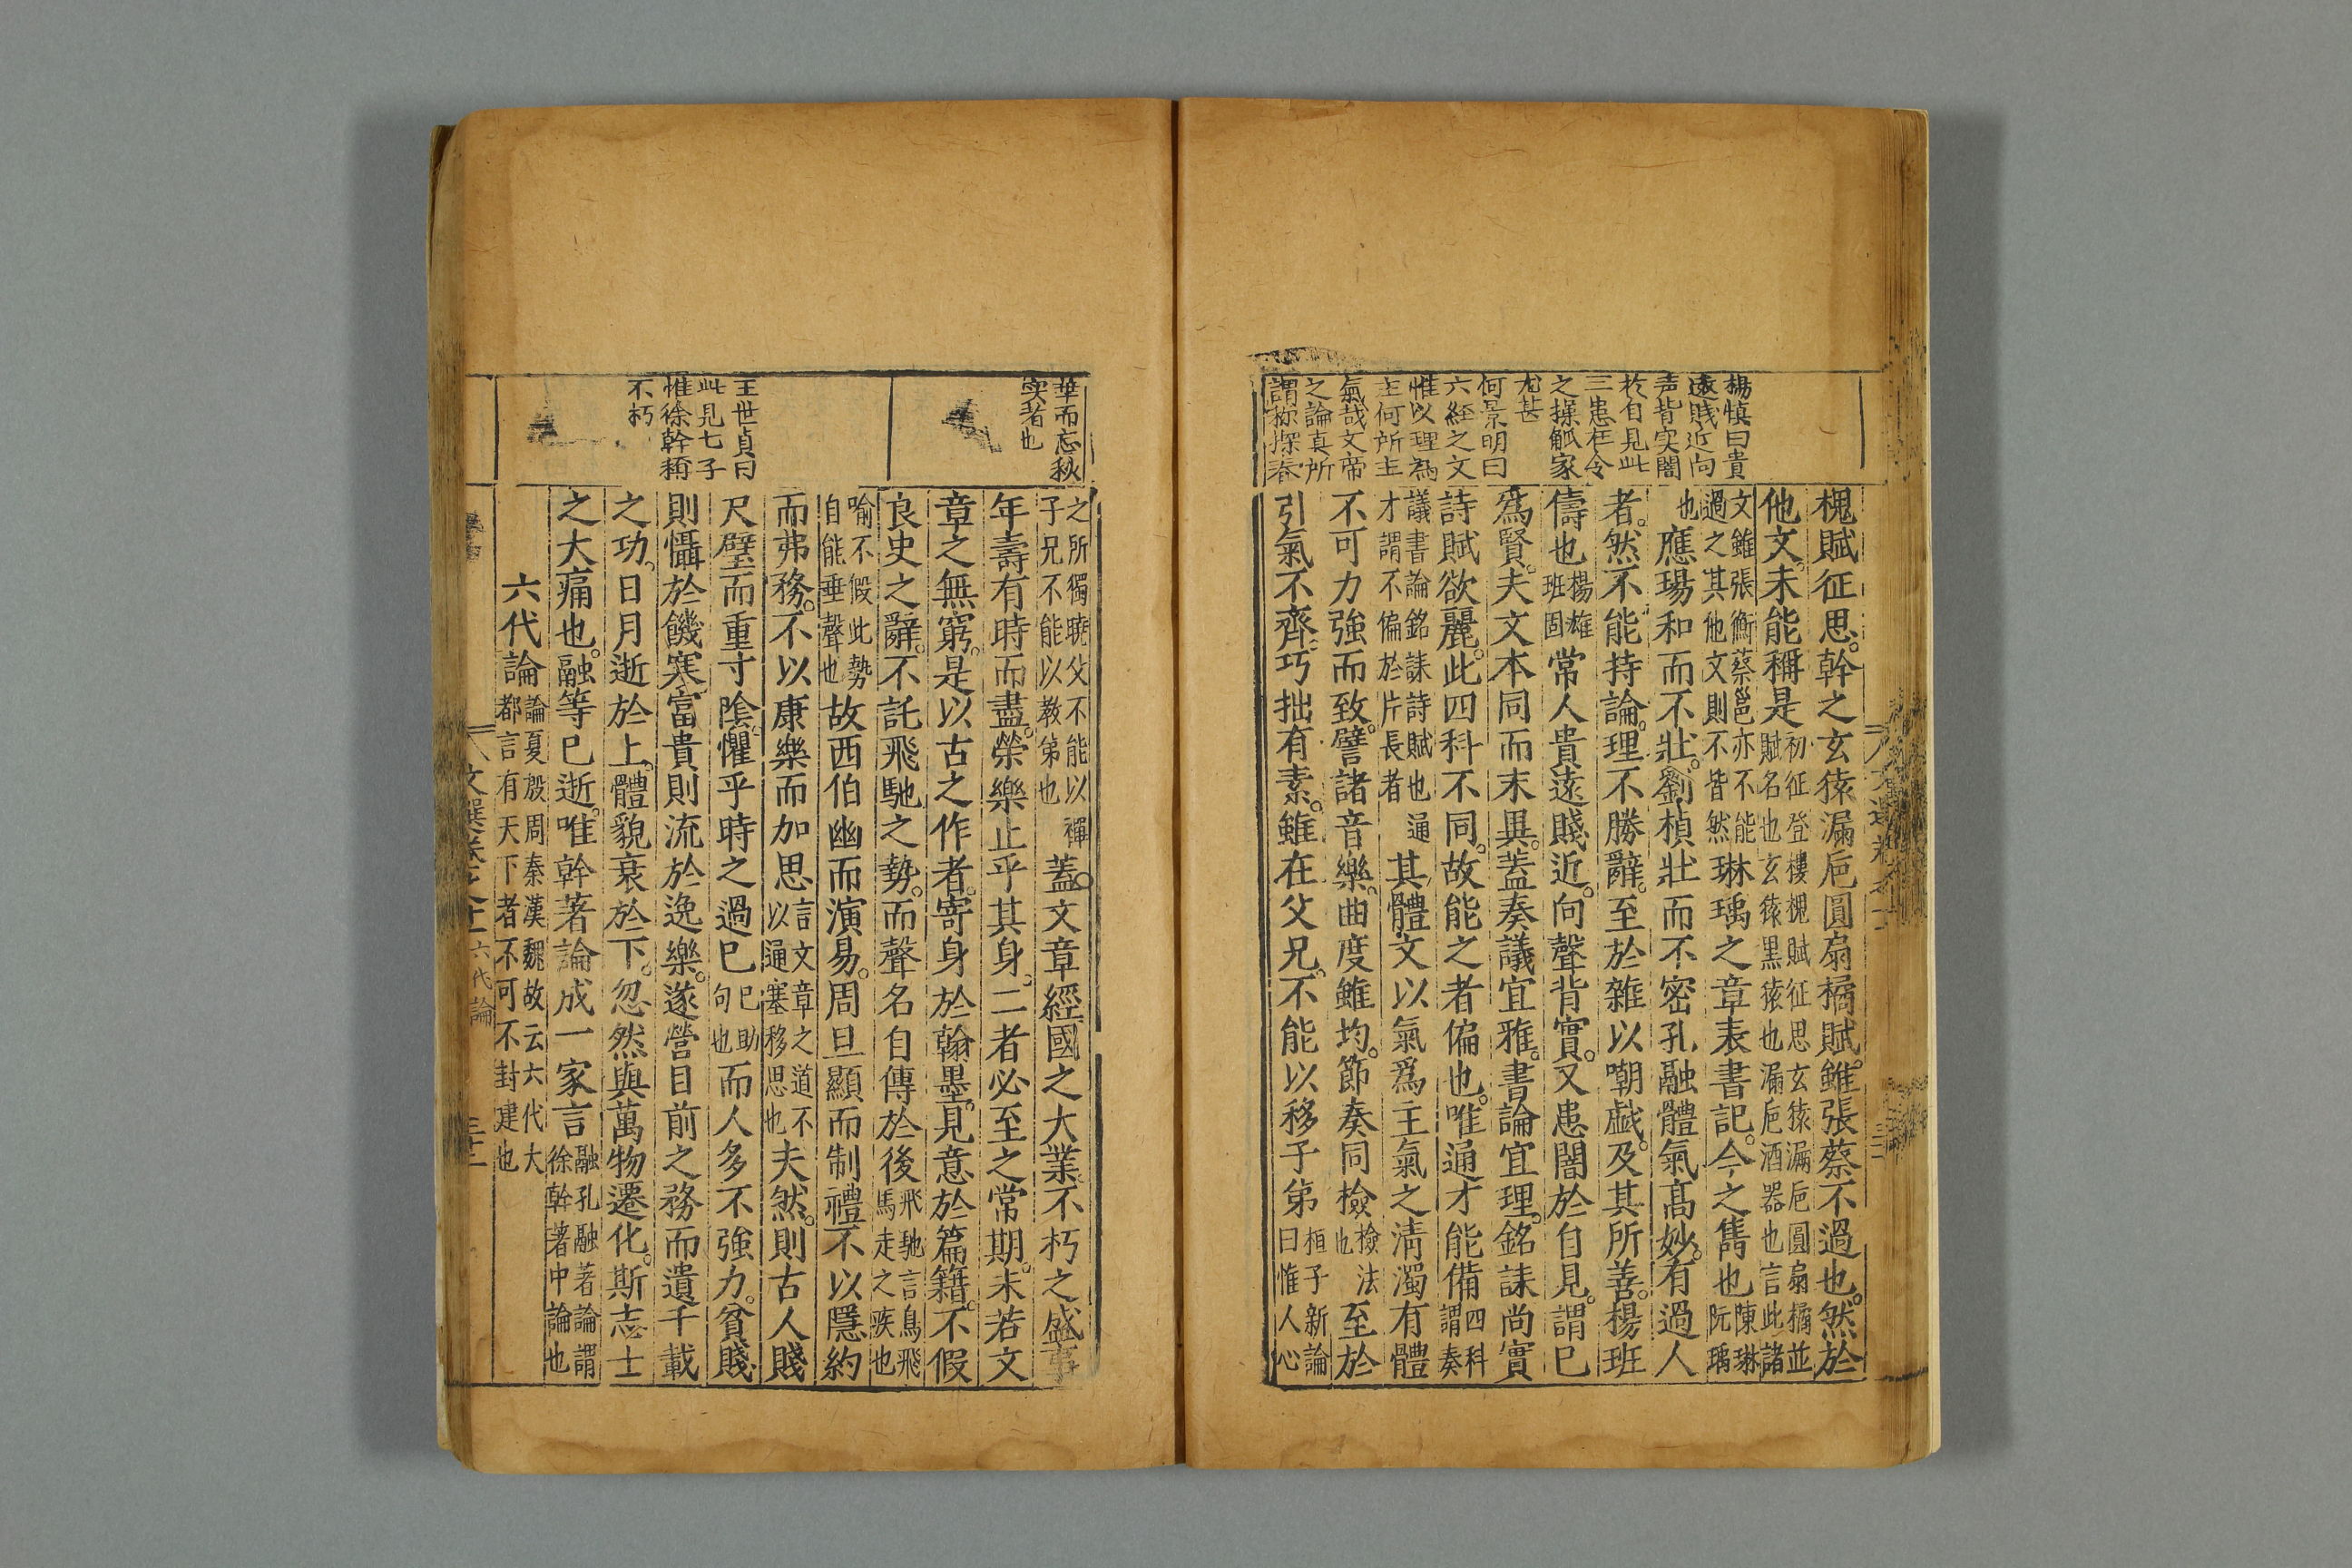 楊慎曰貴
遠賤近向
声背实闇
於自見此
三患在今
之操觚家
尤甚
何景明曰
六經之文
惟以理為
主何所主
氣哉文帝
之論真所
謂称探春
槐賦征思。幹之玄猿漏巵圓扇橘賦。雖張蔡不過也。然於
他文。未能稱是初征登樓槐賦征思玄猿漏巵圓扇橘並賦名也玄猿黑猿也漏巵酒器也言此諸
文雖張衡蔡邕亦不能過之其他文則不皆然琳瑀之章表書記。今之雋也陳琳阮瑀
也應瑒和而不壯。劉楨壯而不密孔融體氣髙妙。有過人
者。然不能持論。理不勝辭。至於雜以嘲戯。及其所善。楊班
儔也楊雄班固常人貴遠賤近。向聲背實。又患闇於自見。謂已
爲賢。夫文本同而末異。蓋奏議宜雅。書論宜理。銘誄尚實
詩賦欲麗。此四科不同。故能之者偏也。唯通才能備四科謂奏
議書論銘誄詩賦也通才謂不偏於片長者其體文以氣爲主氣之淸濁有體
不可力強而致。譬諸音樂。曲度雖均。節奏同檢檢法也至於
引氣不齊。巧拙有素。雖在父兄。不能以移子弟桓子新論曰惟人心
華而忘秋
实者也
王世貞曰
此見七子
惟徐幹稱
不朽
之所獨曉父不能以禪子兄不能以教弟也蓋。文章經國之大業不朽之盛事
年壽有時而盡。榮樂止乎其身。二者必至之常期。未若文
章之無窮。是以古之作者。寄身於翰墨。見意於篇籍。不假
良史之辭。不託飛馳之勢。而聲名自傳於後飛馳言鳥飛馬走之疾也
喻不假此勢自能垂聲也故西伯幽而演易。周旦顯而制禮不以隱約
而弗務。不以康樂而加思言文章之道不以通塞移思也夫然。則古人賤
尺璧而重寸陰。懼乎時之過已已助句也而人多不強力。貧賤
則懾於饑寒富貴則流於逸樂。遂營目前之務而遺千載
之功。日月逝於上。體貌衰於下。忽然與萬物遷化。斯志士
之大痛也。融等已逝。唯幹著論成一家言融孔融著論謂徐幹著中論也
六代論論夏殷周秦漢魏故云六代大都言有天下者不可不封建也
文選卷之十一 六代論 三十二